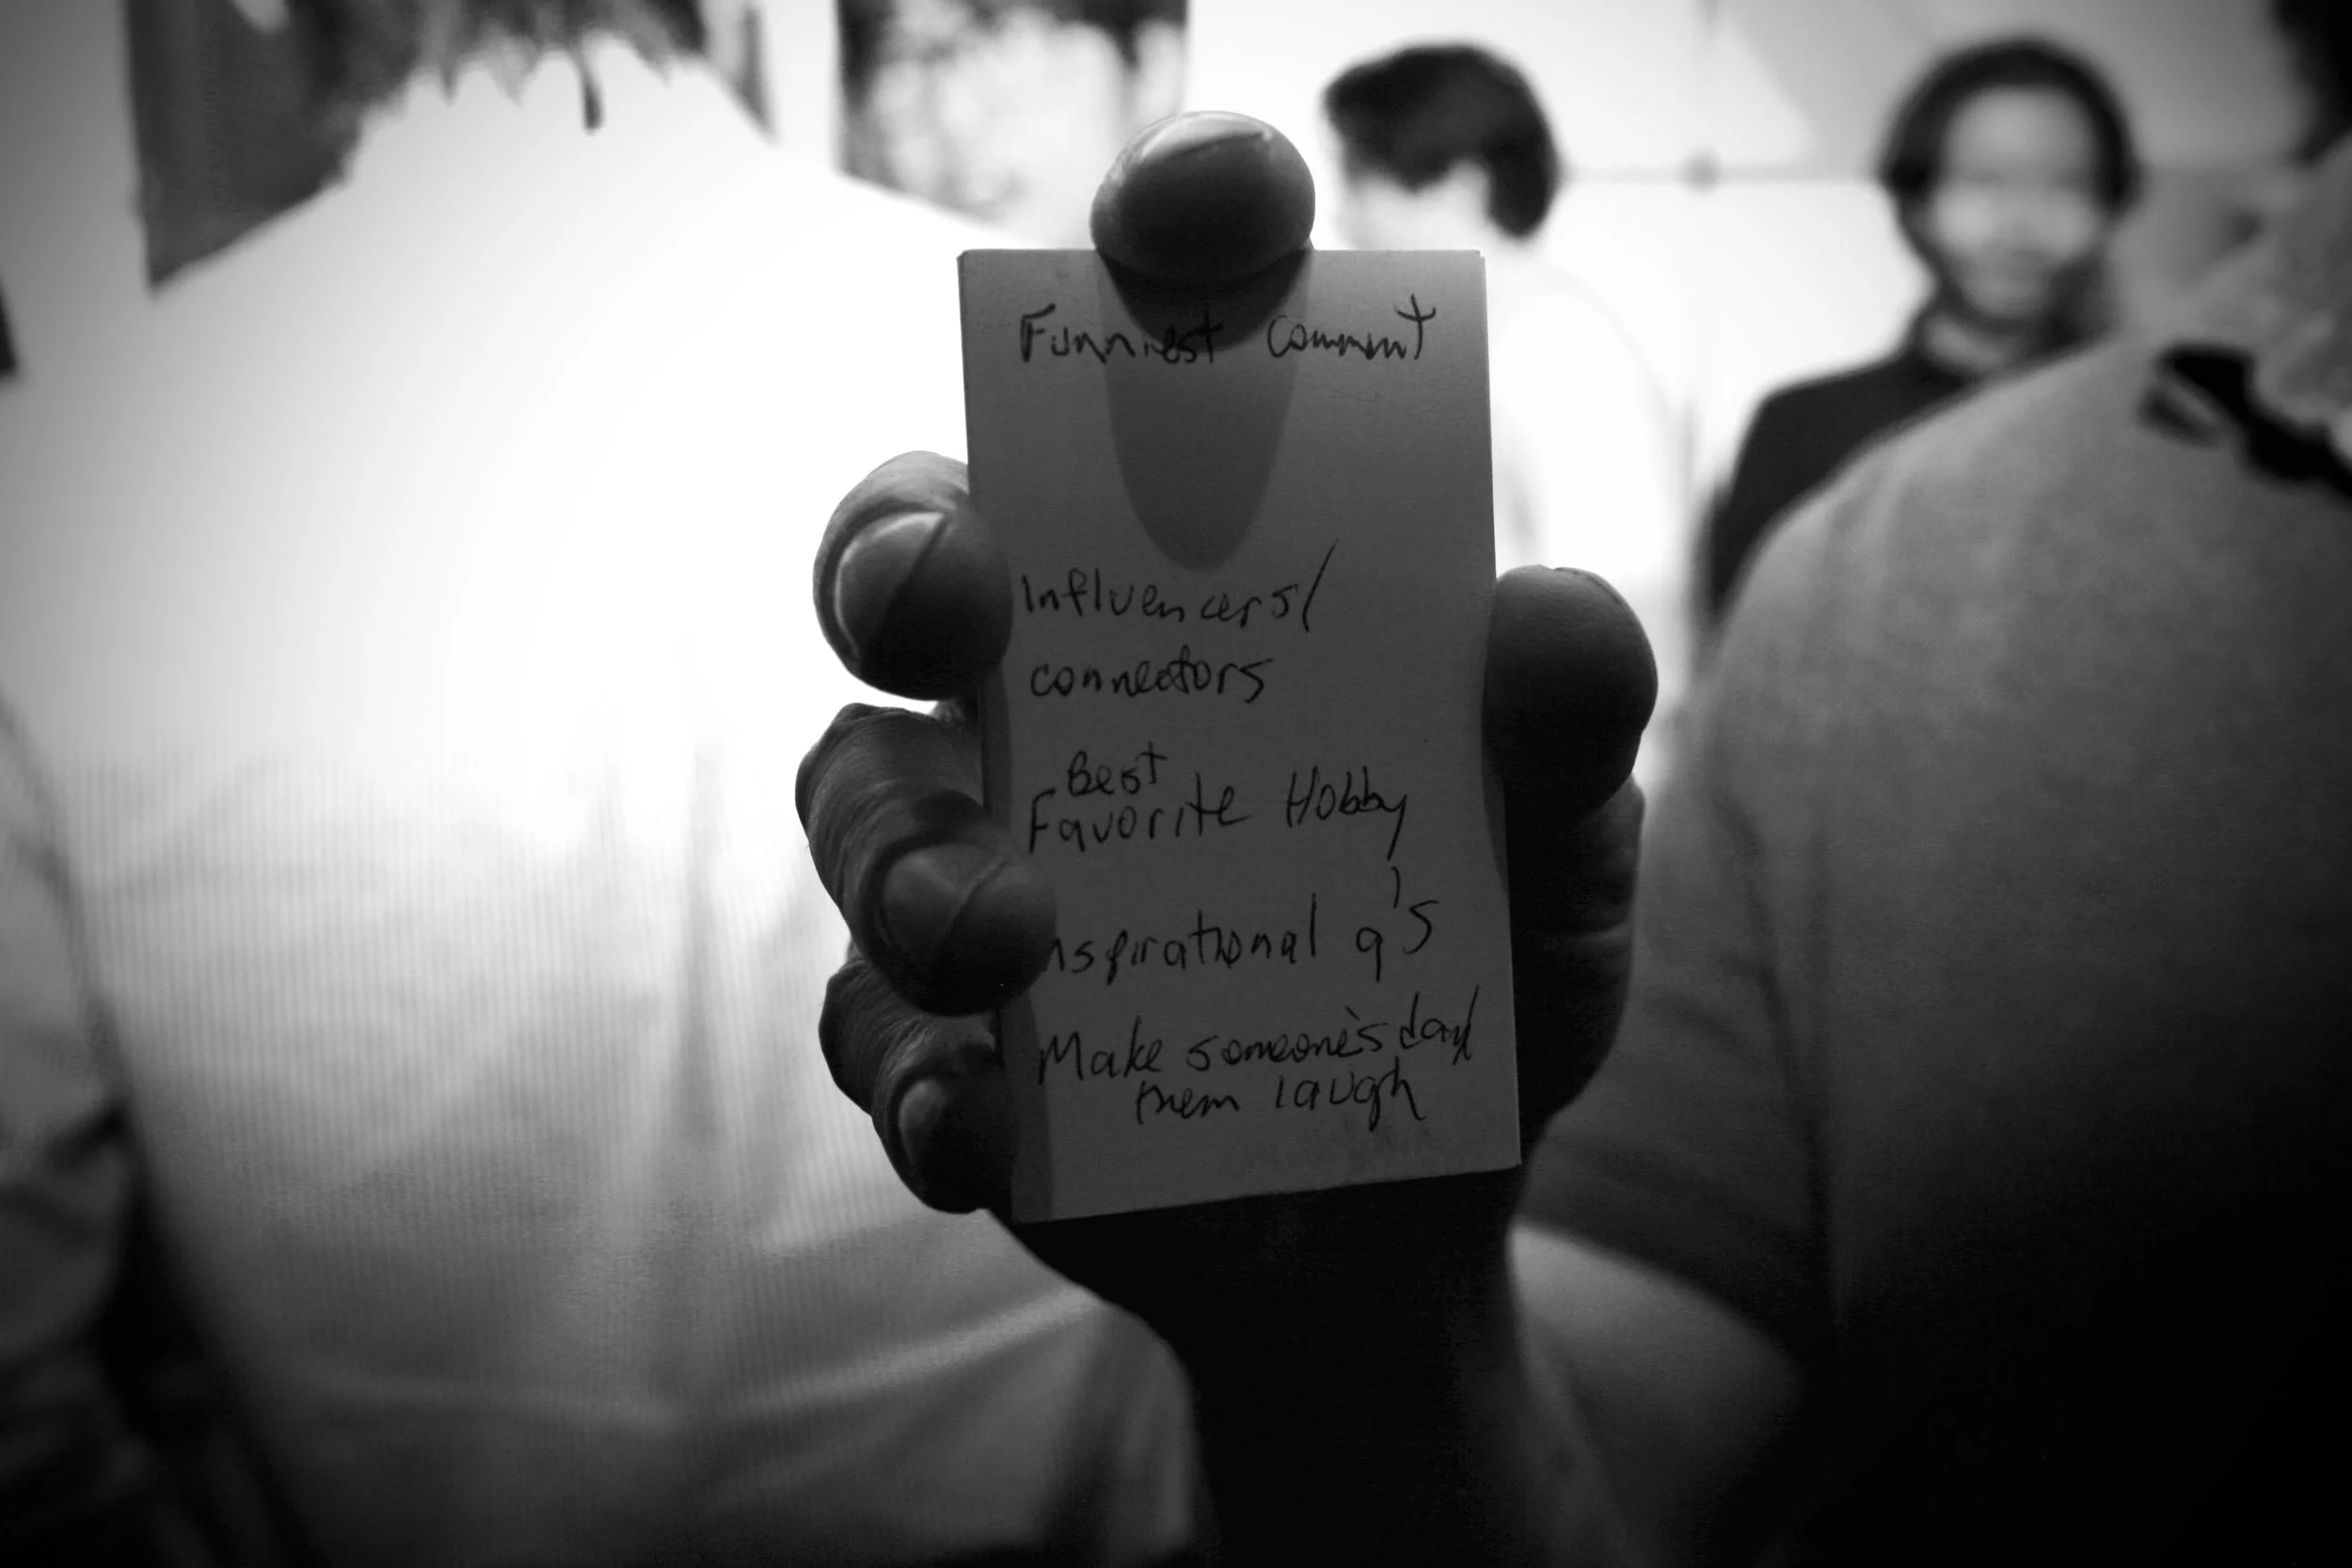 Funniest Comment
Influencers/
connectors
Best
Favorite Hobby
nspirational q's
Make someone's day/
them laugh